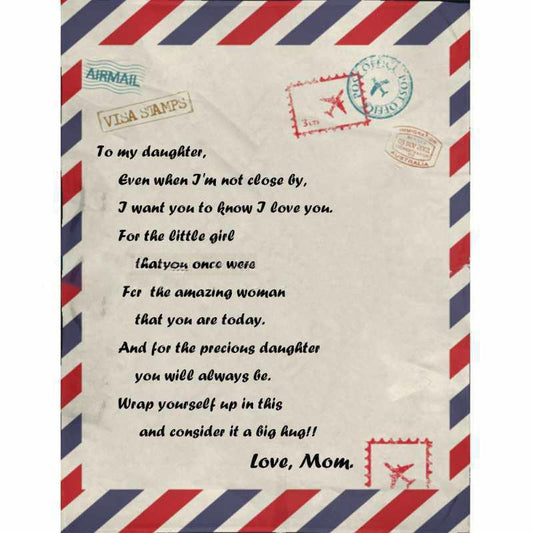 AIRMAIL
VISA STAMPS
POST OFFICE POST OFFIC
3cts
IMMIGRATION
AUSTRALIA
To my daughter,
Even when I'm not close by,
I want you to know I love you.
For the little girl
thatyou once were
Fer the amazing woman
that you are today.
And for the precious daughter
you will always be.
Wrap yourself up in this
and consider it a big hug!!
Love, Mom.